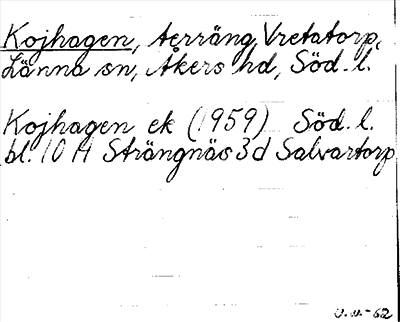 Kojhagen, terräng, Vretatorp,
Länna sn, Åkers hd, Söd. l.
Kojhagen ek (1959) Söd. l.
bl. 10 H Strängnäs 3d Salvartorp
U.U.-62